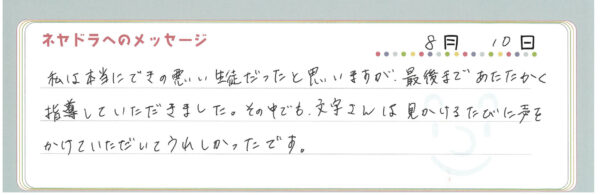 ネヤドラへのメッセージ
8月 10日
私は本当にできの悪い生徒だったと思いますが、最後まであたたかく
指導していただきました。その中でも、文字さんは見かけるたびに声を
かけていただいてうれしかったです。